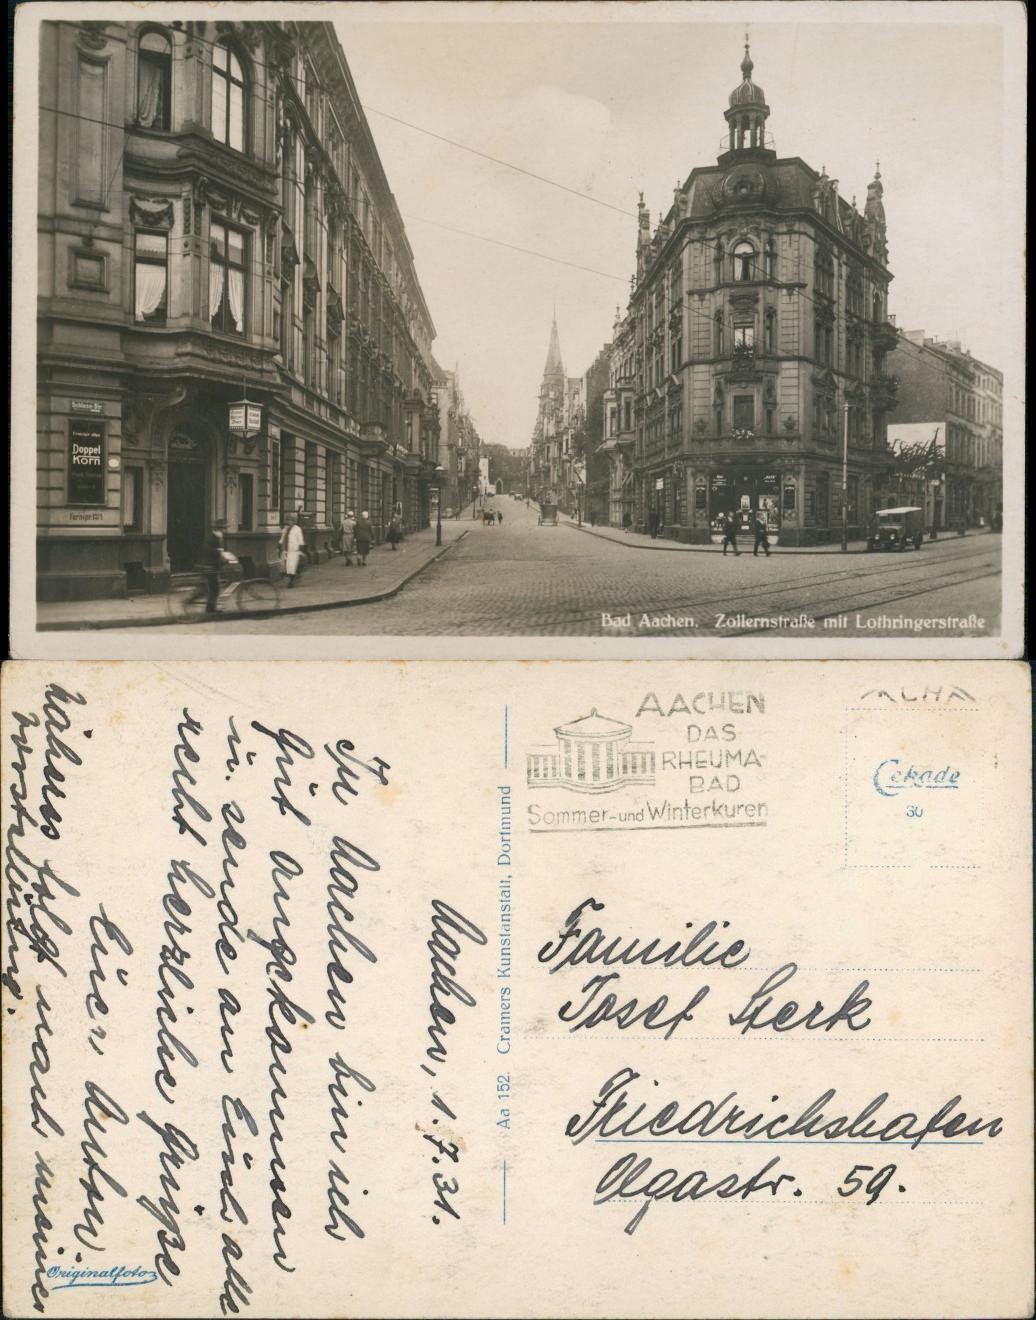 Doppel
Korn
Bad Aachen. Zollernstraße mit Lothringerstraße
AACHEN
DAS
RHEUMA-
BAD
Sommer- und Winterkuren
Cekade
30
Aa 152. Cramers Kunstanstalt, Dortmund
Originalfoto
Aachen, 1.7.31.
In Aachen bin ich
gut angekommen
u. sende an Euch alle
recht herzliche Grüße
Euer Anton.
Näheres folgt nach meiner
Vorstellung.
Familie
Josef Sterk
Friedrichshafen
Olgastr. 59.